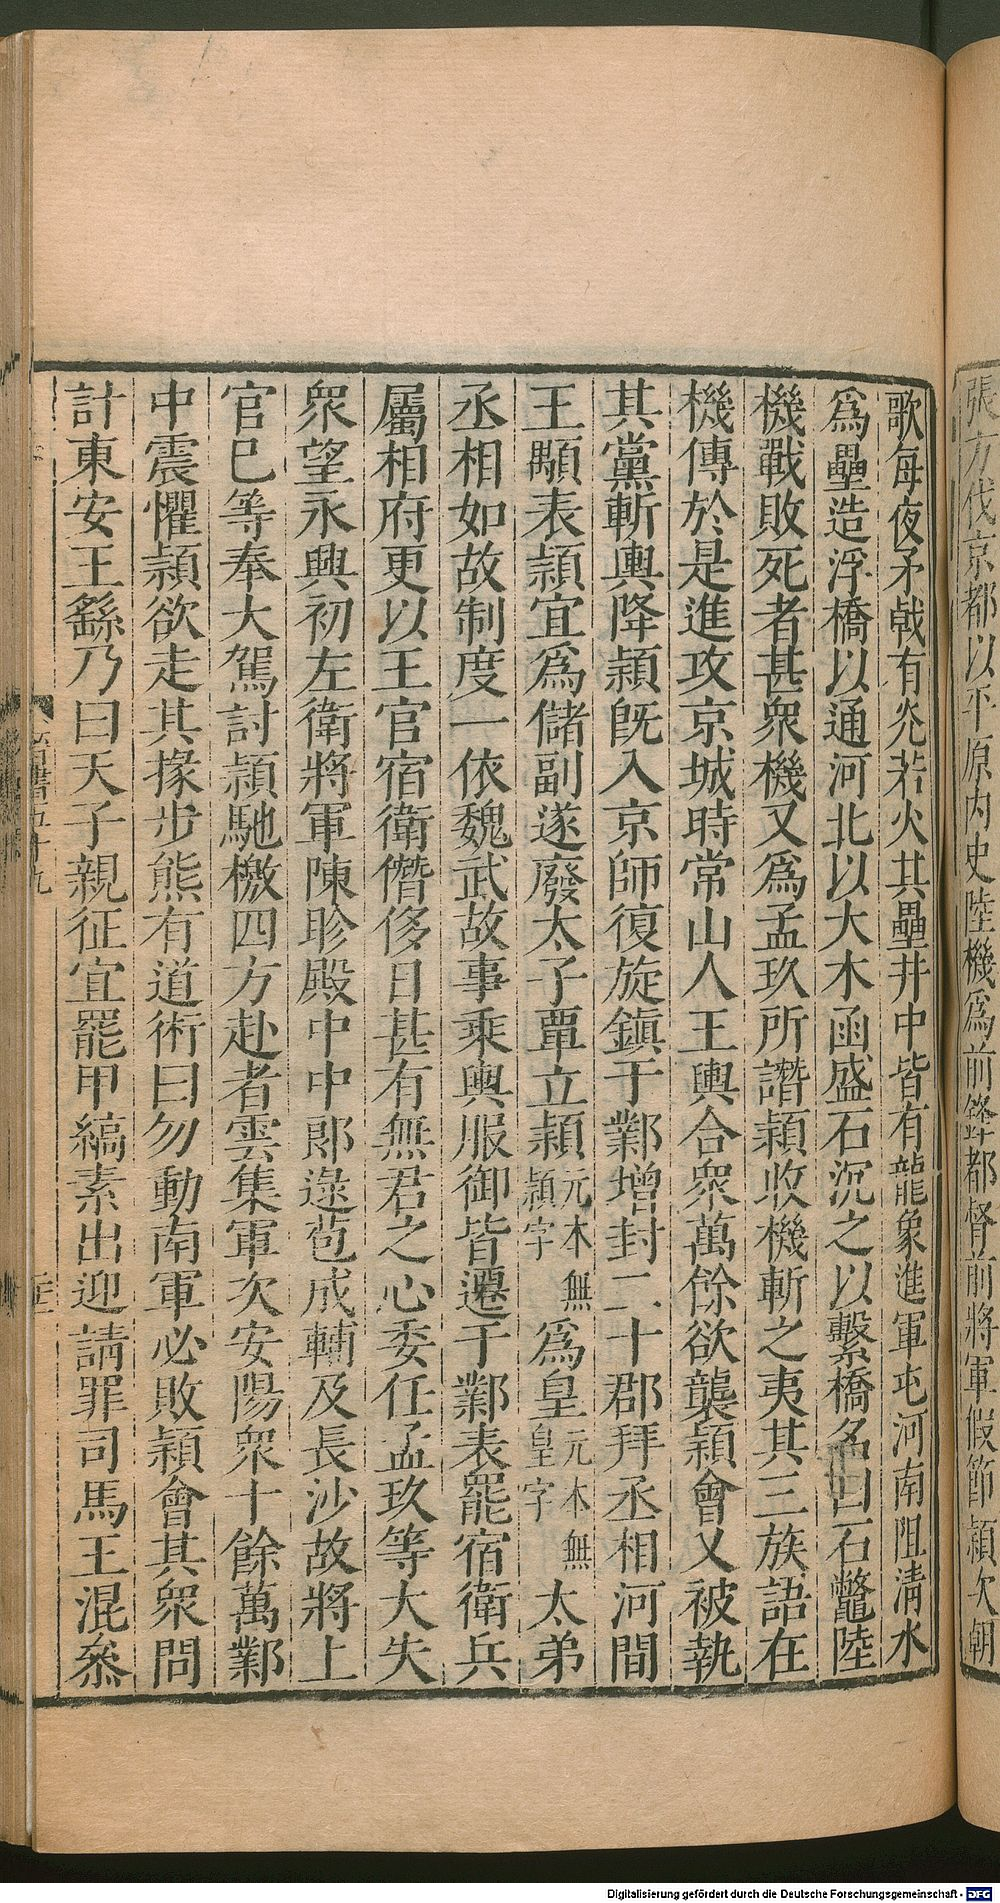 張方伐京都以平原內史陸機爲前鋒都督前將軍假節穎次朝
歌每夜矛戟有光若火其壘井中皆有龍象進軍屯河南阻清水
爲壘造浮橋以通河北以大木函盛石沉之以繫橋名曰石鼈陸
機戰敗死者甚衆機又爲孟玖所譖穎收機斬之夷其三族語在
機傳於是進攻京城時常山人王輿合衆萬餘欲襲穎會又被執
其黨斬輿降穎旣入京師復旋鎮于鄴增封二十郡拜丞相河間
王顒表穎宜爲儲副遂廢太子覃立穎元本無穎字爲皇元本無皇字太弟
丞相如故制度一依魏武故事乘輿服御皆遷于鄴表罷宿衛兵
屬相府更以王官宿衛僭侈日甚有無君之心委任孟玖等大失
衆望永興初左衛將軍陳眕殿中中郎逯苞成輔及長沙故將上
官巳等奉大駕討穎馳檄四方赴者雲集軍次安陽衆十餘萬鄴
中震懼穎欲走其掾步熊有道術曰勿動南軍必敗穎會其衆問
計東安王繇乃曰天子親征宜罷甲縞素出迎請罪司馬王混叅
晉書五十九
Digitalisierung gefördert durch die Deutsche Forschungsgemeinschaft - DFG